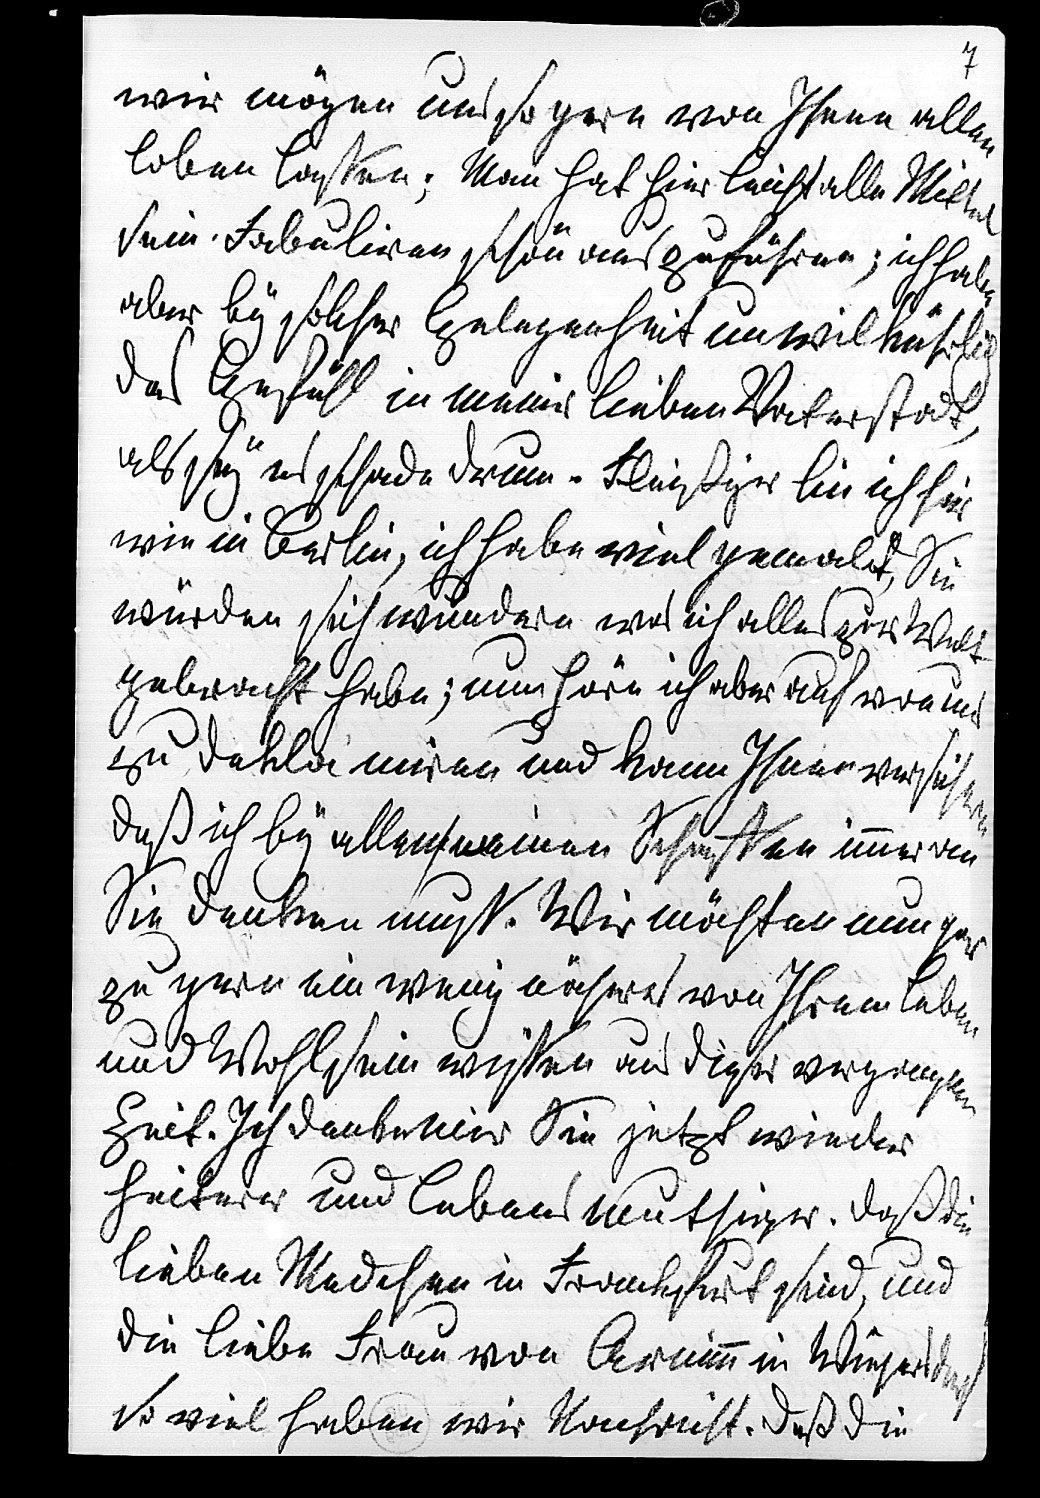 7
wir mögen uns so gern von Ihnen allen
loben lassen; Man hat hier leicht alle Mittel
sein Fabuliren schön auszuführen; ich habe
aber bÿ solcher Gelegenheit unwilkührlig
das Gefühl in meiner lieben Vaterstadt,
als seÿ es schade drum. Fleißiger bin ich hier
wie in Berlin, ich habe viel gemalt, Sie
würden sich wundern was ich alles zur Welt
gebracht habe; nun höre ich aber auf von uns
zu deklamiren und kann Ihnen versichern
daß ich bÿ allem meinen Schaffen im̄er an
Sie denken muß. Wir möchten nun gar
zu gern ein wenig näheres von Ihrem Leben
und Wohlsein wissen aus dieser vergangnen
Zeit. Ich denke mir Sie jetzt wieder
heiterer und lebensmuthiger. Daß die
lieben Medchen in Frankfurt sind, und
die liebe Frau von Arnim̄ in Wiepersdorf
so viel haben wir Nachricht. Daß die